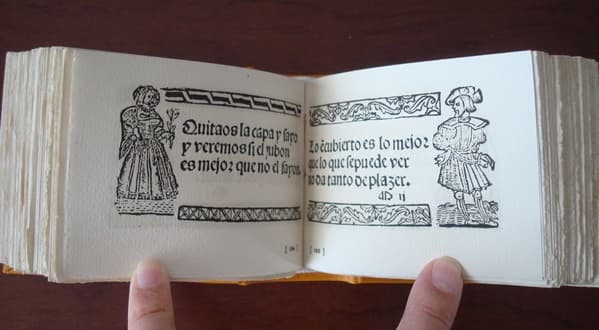 Quitaos la capa y sayo
y veremos si el jubon
es mejor que no el sayon.
Lo ẽcubierto es lo mejor
que lo que sepuede ver
no da tanto de plazer.